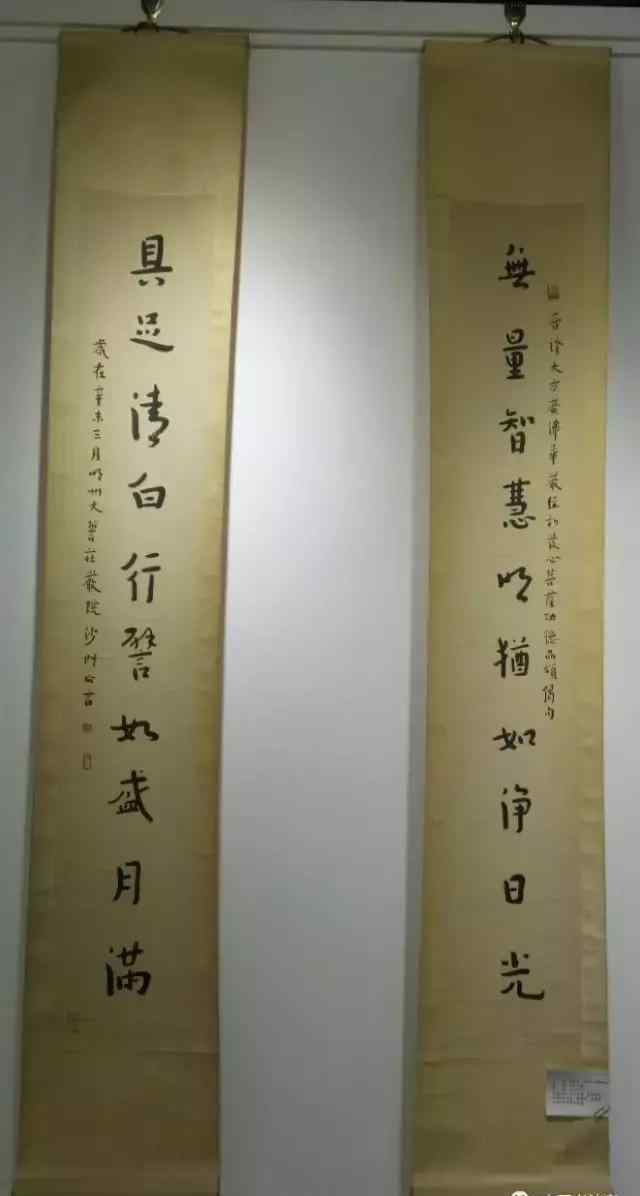 晉譯大方廣佛華嚴經初發心菩薩功德品頌偈句
無量智慧明猶如淨日光
具足清白行譬如盛月滿
歲在辛未三月明州大誓莊嚴院沙門